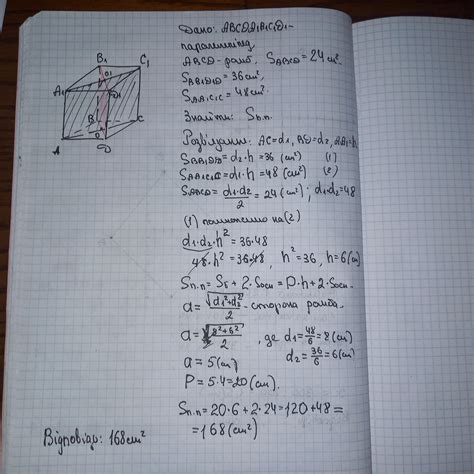 Дано: ABCDA₁B₁C₁D₁ -
паралелепіпед
ABCD - ромб, S_ABCD = 24 см².
S_BB₁D₁D = 36 см²,
S_AA₁C₁C = 48 см².
Знайти: Sп.п.
Розв'язання: AC=d₁, BD=d₂, AA₁=h
S_BB₁D₁D = d₂·h = 36 (см²) (1)
S_AA₁C₁C = d₁·h = 48 (см²) (2)
S_ABCD = d₁·d₂/2 = 24 (см²); d₁·d₂=48
(1) помножимо на (2)
d₁·d₂·h² = 36·48
48·h² = 36·48, h² = 36, h = 6 (см)
Sп.п = Sб + 2·Sосн = P·h + 2·Sосн
a = √(d₁²+d₂²)/2 - сторона ромба.
a = √(8²+6²)/2, де d₁ = 48/6 = 8 (см)
d₂ = 36/6 = 6 (см)
a = 5 (см)
P = 5·4 = 20 (см).
Sп.п = 20·6 + 2·24 = 120 + 48 =
= 168 (см²)
Відповідь: 168 см²
B₁
C₁
O₁
A₁
D₁
B
C
O
A
D